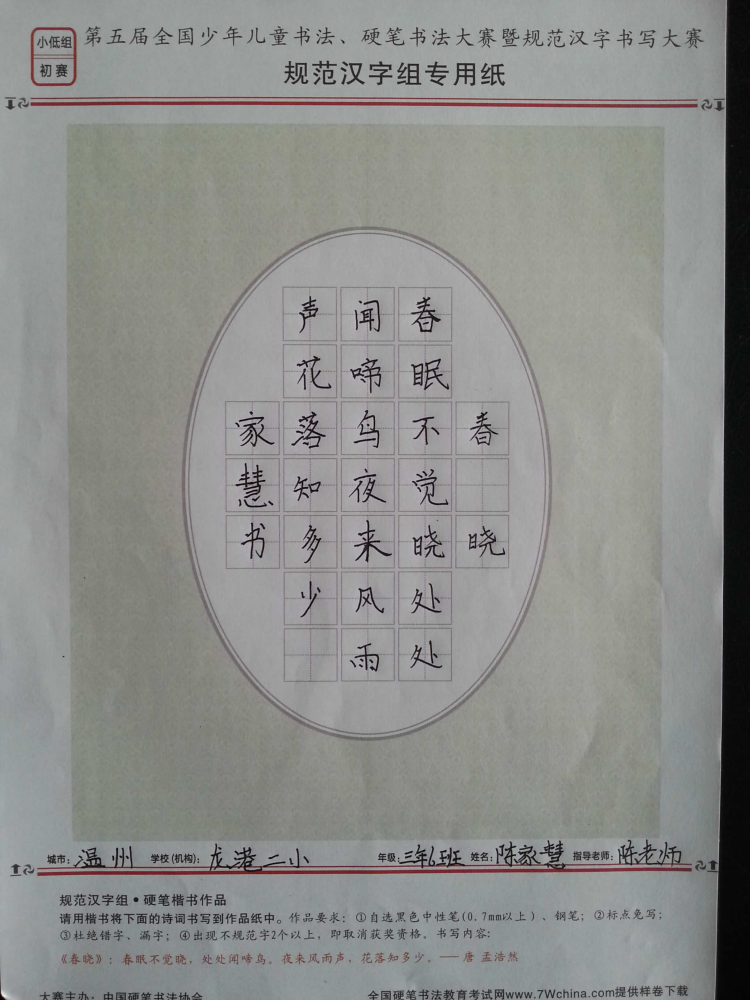 小低组
初赛
第五届全国少年儿童书法、硬笔书法大赛暨规范汉字书写大赛
规范汉字组专用纸
春晓
春眠不觉晓处处
闻啼鸟夜来风雨
声花落知多少
家慧书
城市：温州 学校(机构)：龙港二小 年级：三年6班 姓名：陈家慧 指导老师：陈老师
规范汉字组•硬笔楷书作品
请用楷书将下面的诗词书写到作品纸中。作品要求：①自选黑色中性笔(0.7mm以上)、钢笔；②标点免写；
③杜绝错字、漏字；④出现不规范字2个以上，即取消获奖资格。书写内容：
《春晓》：春眠不觉晓，处处闻啼鸟。夜来风雨声，花落知多少。——唐 孟浩然
大赛主办：中国硬笔书法协会 全国硬笔书法教育考试网www.7Wchina.com提供样卷下载